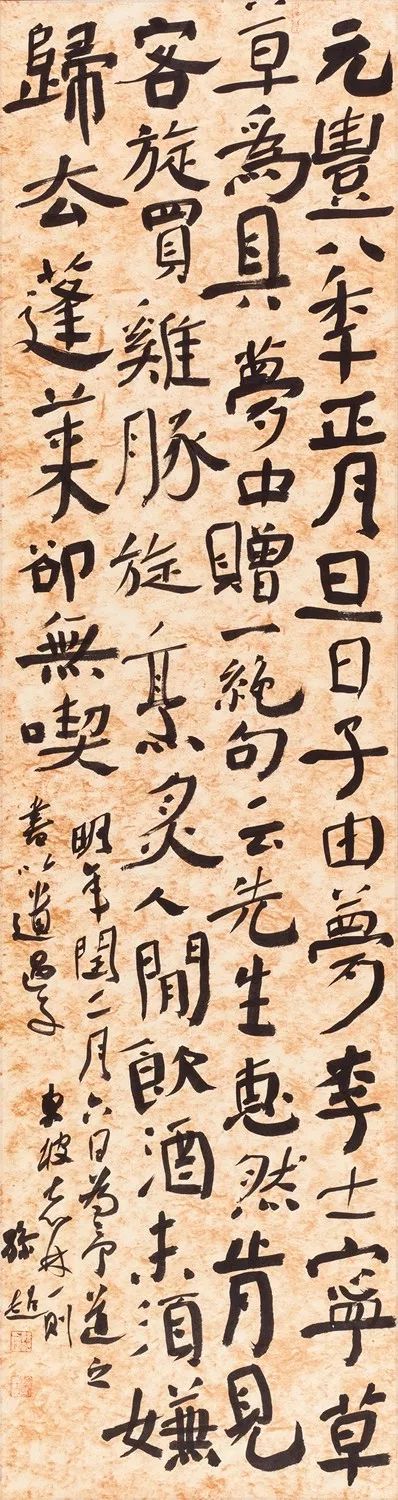 元豐八年正月旦日子由夢李士寧草
草為具夢中贈一絕句云先生惠然肯見
客旋買雞豚旋烹炙人閒飲酒未須嫌
歸去蓬萊卻無喫
明年閏二月六日為予道之
書以遺過子 東坡志林一則